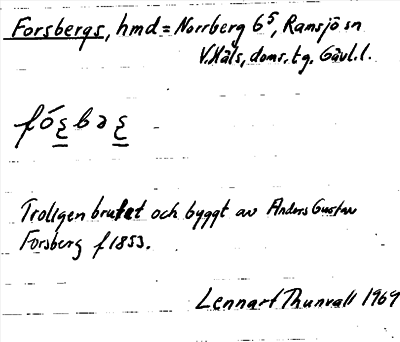 Forsbergs, hmd = Norrberg 6⁵, Ramsjö sn
V. Häls. doms. tg. Gävl. l.
fó̱ʂbəʂ
Troligen brutet och byggt av Anders Gustav
Forsberg f 1853.
Lennart Thunvall 1969